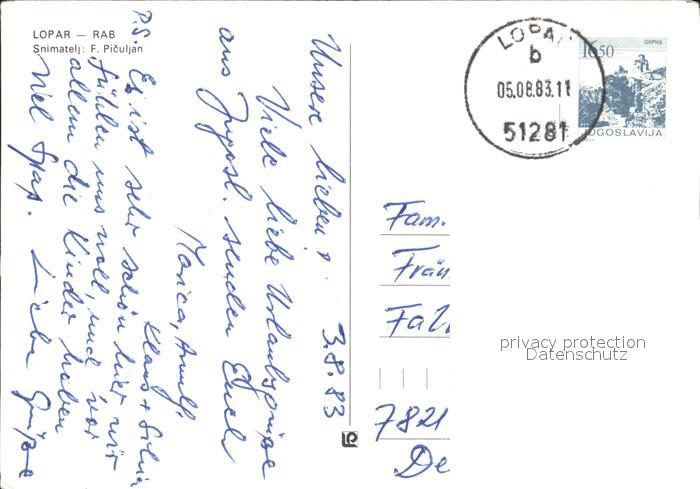 LOPAR — RAB
Snimatelj: F. Pičuljan
3.8.83
Unsere Lieben!
Viele liebe Urlaubsgrüße
aus Jugosl. senden Euch
Monica, Arnulf,
Klaus + Silvia
P.S. Es ist sehr schön hier wir
fühlen uns wohl, und vor
allem die Kinder haben
viel Spaß. Liebe Grüße
LOPAR
b
05.08.83.11
51281
16.50
OHRID
JUGOSLAVIJA
Fam.
Frän
Fal
7821
De
privacy protection
Datenschutz